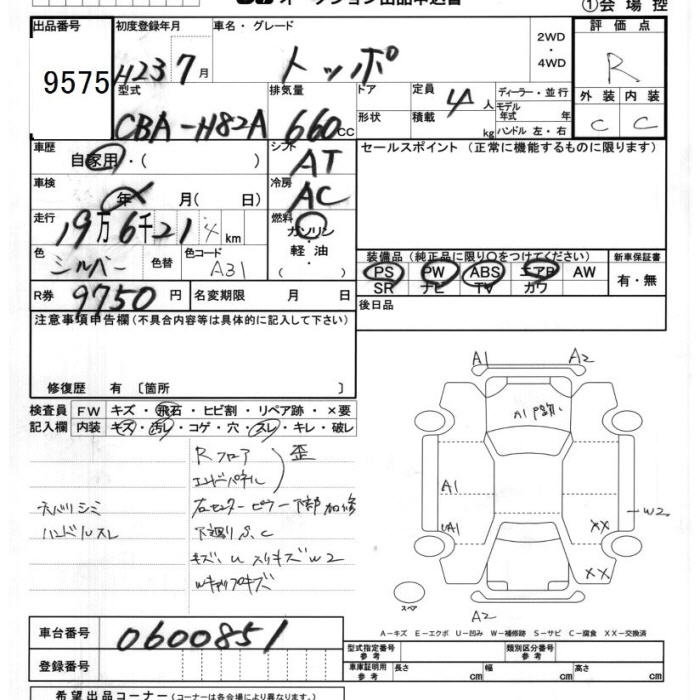 ①会場控
出品番号 初度登録年月 車名・グレード 評価点
9575 H23 7月 トッポ 2WD ・ 4WD R
型式 排気量 ドア 定員 4人 ディーラー・並行 外装 内装
CBA-H82A 660cc 形状 積載 kg モデル年式 年 ハンドル 左・右 C C
車歴 自家用・( ) シフト AT セールスポイント (正常に機能するものに限ります)
車検 年 月( 日) 冷房 AC
走行 19万6千21 km 燃料 ガソリン
軽油・
色 シルバー 色替 色コード A31 装備品 (純正品に限り○をつけてください) 新車保証書
PS PW ABS エアB AW 有・無
SR ナビ TV カワ
R券 9750円 名変期限 月 日 後日品
注意事項申告欄(不具合内容等は具体的に記入して下さい)
修復歴 有 〔箇所 〕
検査員 FW キズ・飛石・ヒビ割・リペア跡・×要
記入欄 内装 キズ・汚レ・コゲ・穴・スレ・キレ・破レ
Rフロア
エンドパネル 歪
ネバリシミ 右センターピラー下部加修
ハンドルスレ 下廻りS.C
キズ、U スリキズW2
Wキャップキズ
A1 A2
A1
A1
W2
XX
XX
スペア
A2
A-キズ E-エクボ U-凹み W-補修跡 S-サビ C-腐食 XX-交換済
車台番号 0600851
型式指定番号 参考 類別区分番号 参考
登録番号 車庫証明用 参考 長さ cm 幅 cm 高さ cm
希望出品コーナー(コーナーは各会場により異なります)